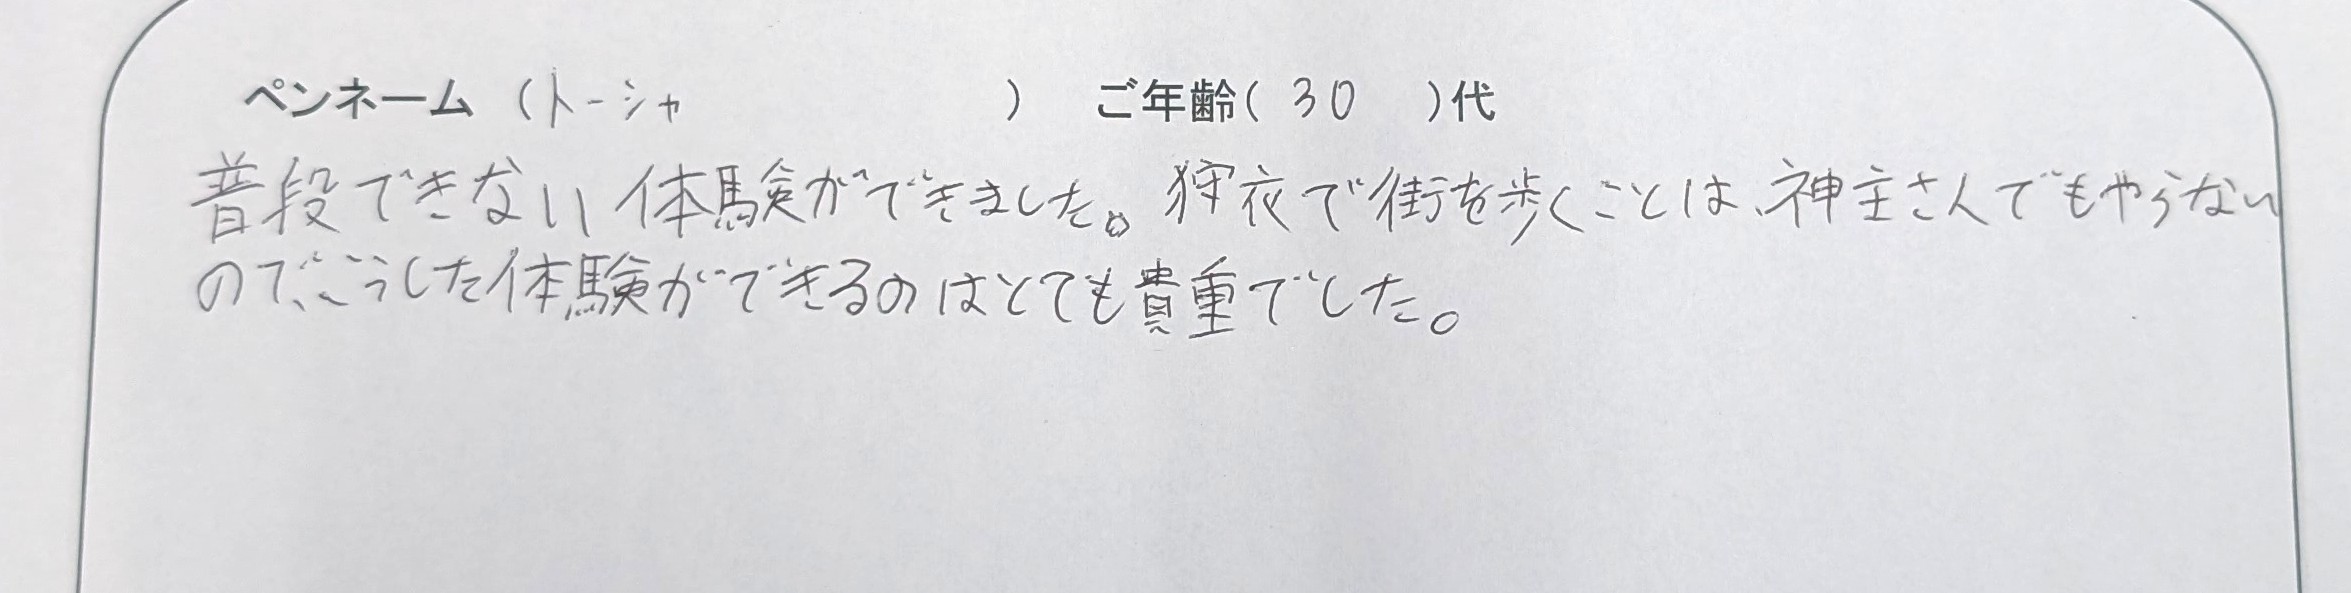 ペンネーム （トーシャ　） ご年齢（ 30 ）代
普段できない体験ができました。狩衣で街を歩くことは、神主さんでもやらない
ので、こうした体験ができるのはとても貴重でした。